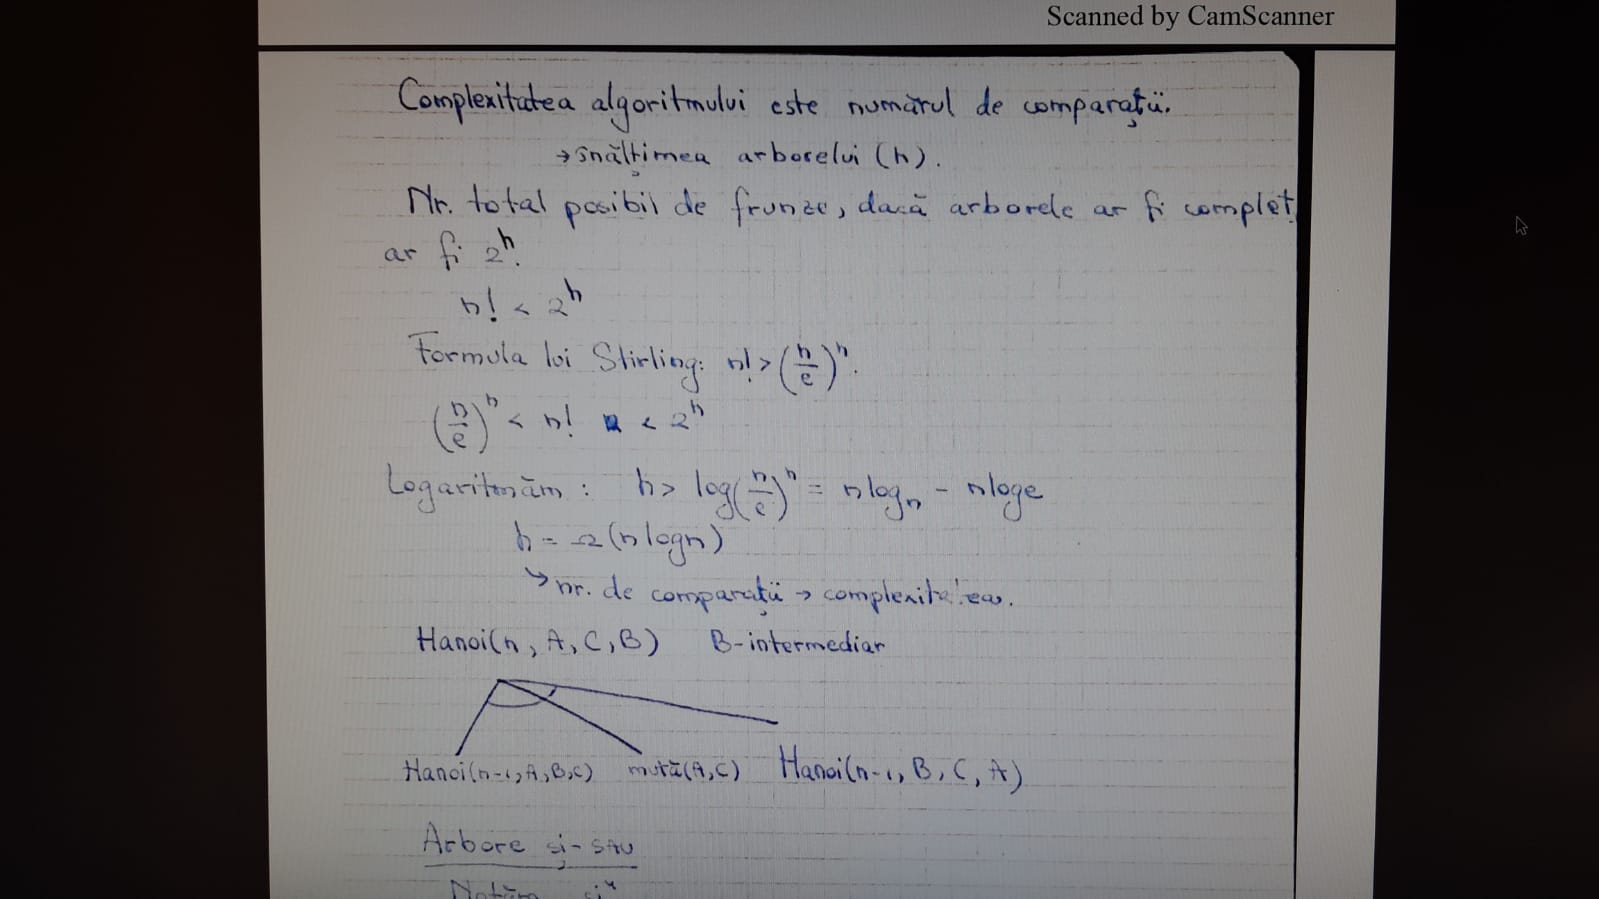 Scanned by CamScanner
Complexitatea algoritmului este numărul de comparații.
→ înălțimea arborelui (h).
Nr. total posibil de frunze, dacă arborele ar fi complet,
ar fi 2^h.
n! < 2^h
Formula lui Stirling: n! > (n/e)^n.
(n/e)^n < n! < 2^h
Logaritmăm : h > log(n/e)^n = n log n - n log e
h = Ω(n log n)
↳ nr. de comparații → complexitatea.
Hanoi(n, A, C, B) B-intermediar
Hanoi(n-1, A, B, C) mută(A, C) Hanoi(n-1, B, C, A)
Arbore și-sau
Notăm